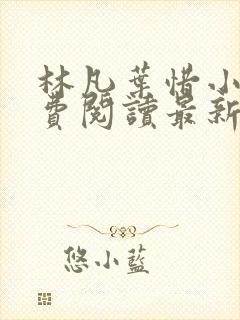 林凡葉惜小
費閱讀最新
悠小藍